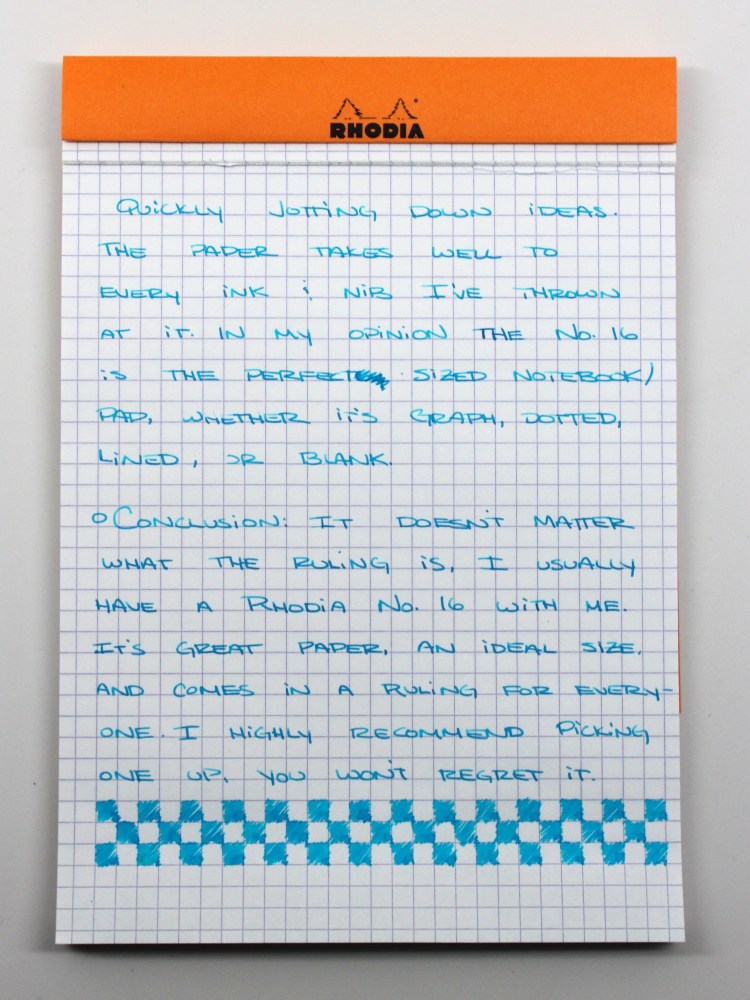 RHODIA
QUiCKLY JOTTiNG DOWN iDEAS.
THE PAPER TAKES WELL TO
EVERY iNK & NiB I'VE THROWN
AT iT. IN MY OPiNiON THE No. 16
iS THE PERFECT SiZED NOTEBOOK/
PAD, WHETHER iT'S GRAPH, DOTTED,
LiNED, OR BLANK.
o CONCLUSiON: IT DOESN'T MATTER
WHAT THE RULiNG iS, I USUALLY
HAVE A RHODiA No. 16 WiTH ME.
IT'S GREAT PAPER, AN iDEAL SiZE,
AND COMES iN A RULiNG FOR EVERY-
ONE. I HiGHLY RECOMMEND PiCKiNG
ONE UP, YOU WON'T REGRET iT.